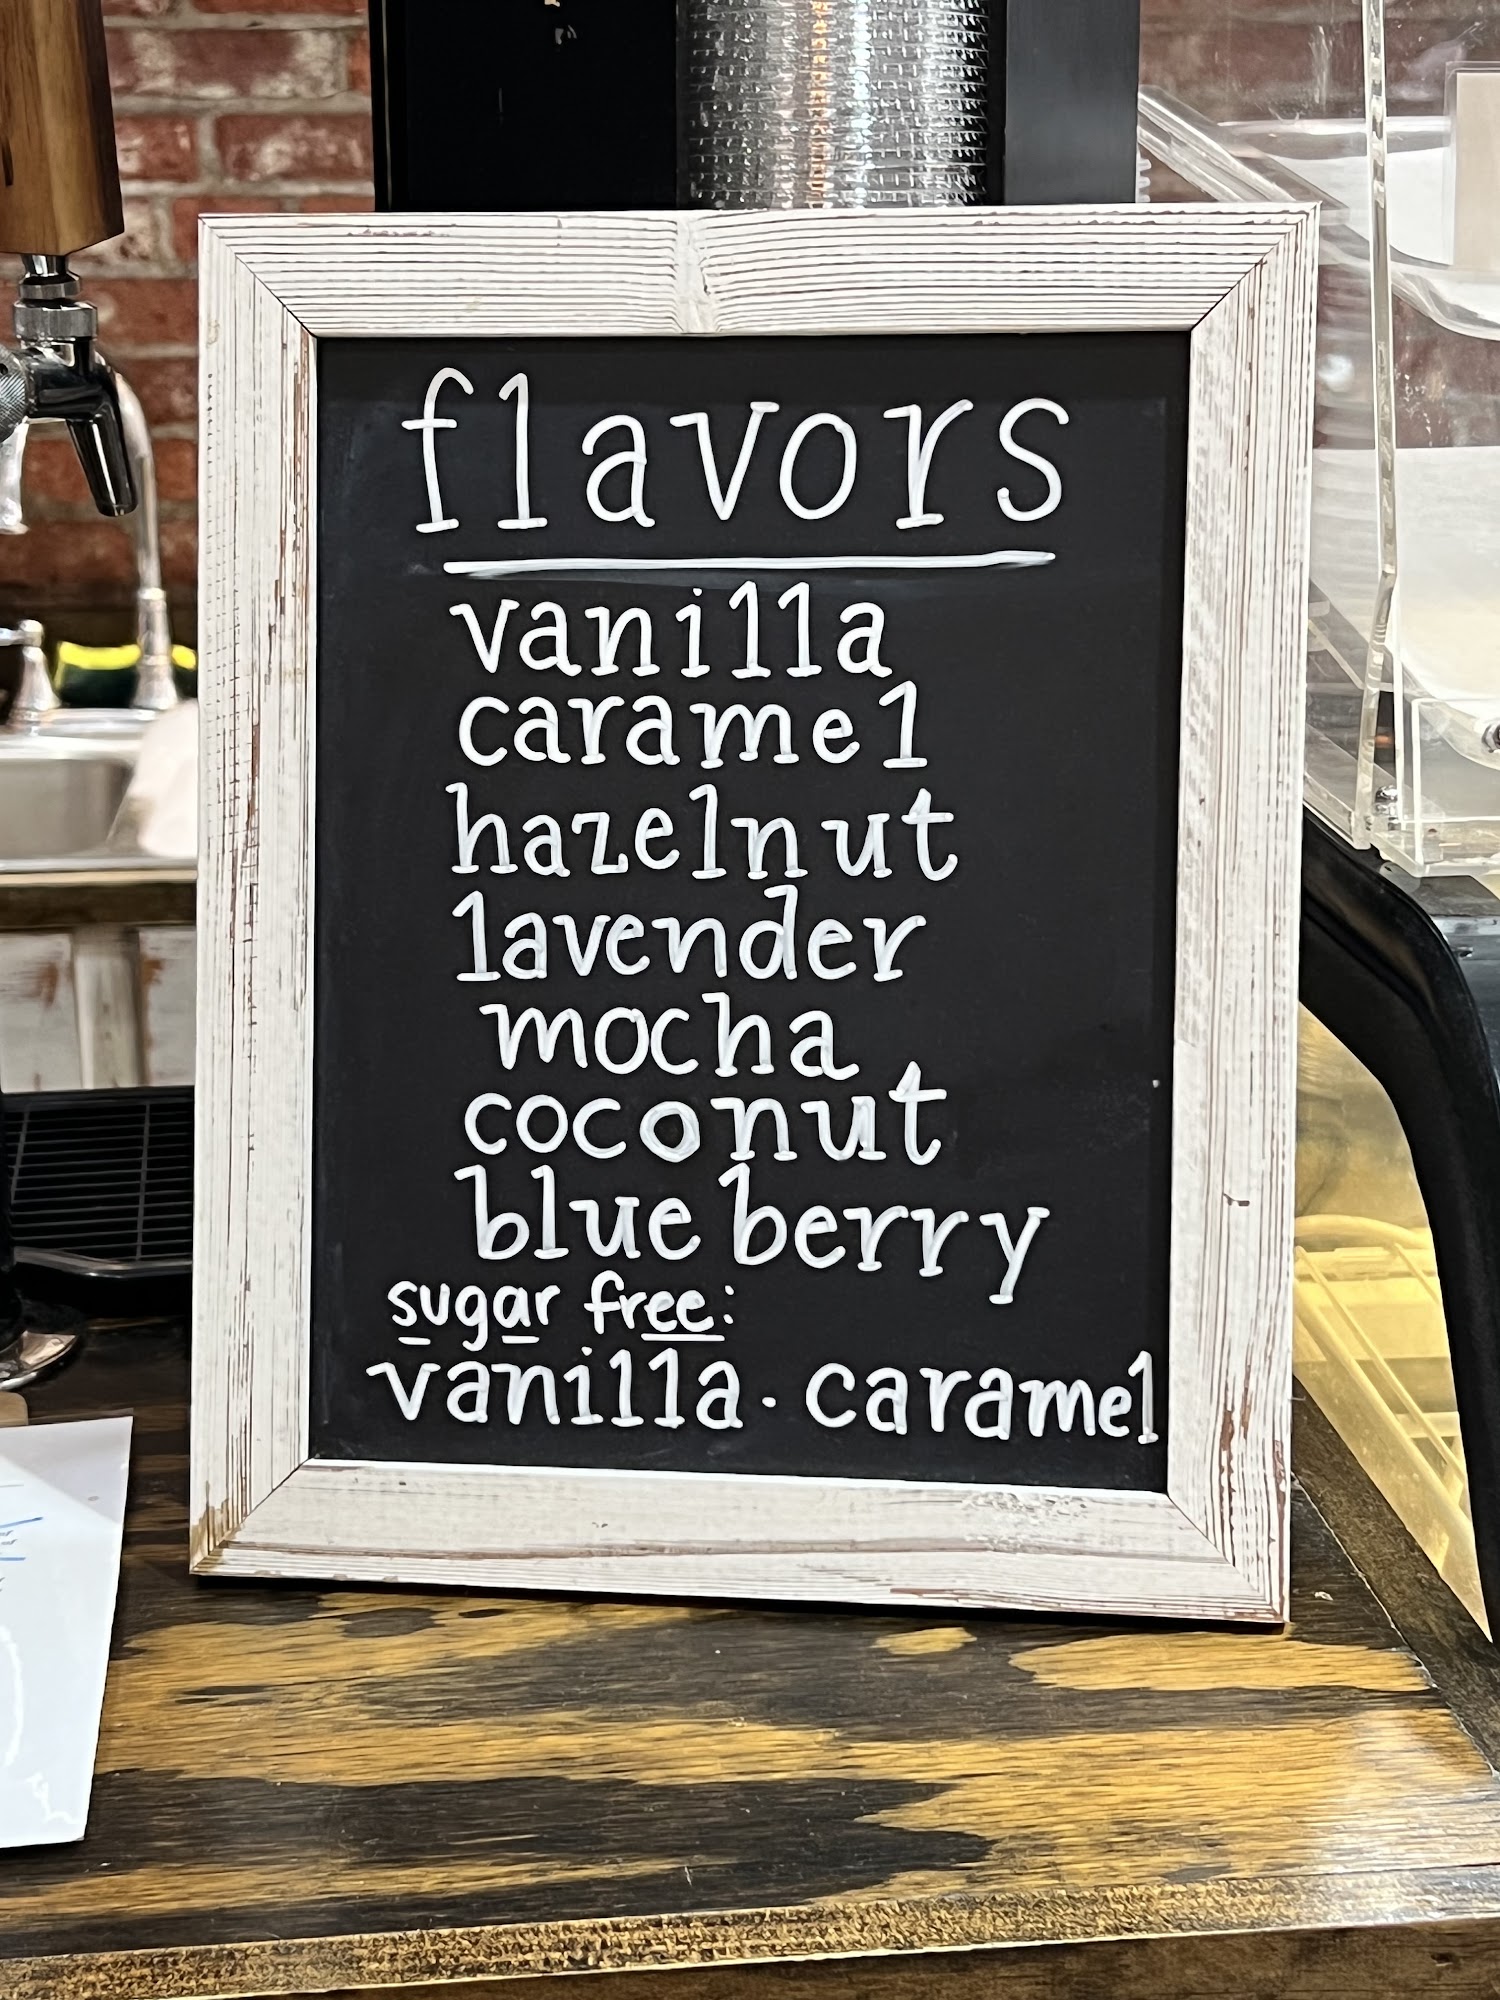 flavors
vanilla
caramel
hazelnut
lavender
mocha
coconut
blueberry
sugar free:
vanilla · caramel